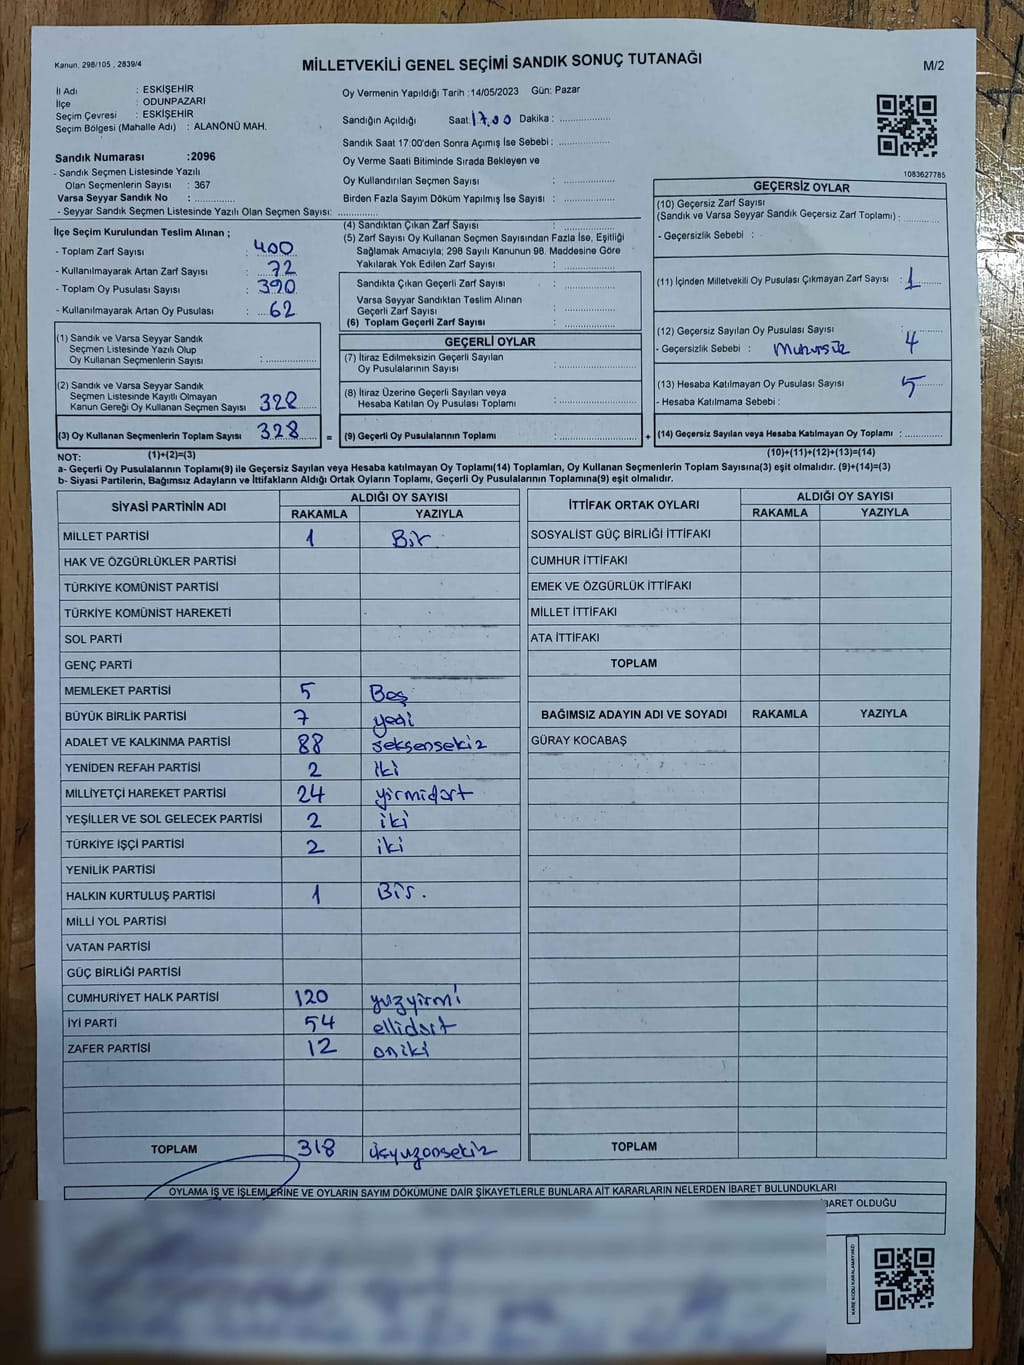 Kanun, 298/105 , 2839/4
MİLLETVEKİLİ GENEL SEÇİMİ SANDIK SONUÇ TUTANAĞI
M/2
İl Adı : ESKİŞEHİR
İlçe : ODUNPAZARI
Seçim Çevresi : ESKİŞEHİR
Seçim Bölgesi (Mahalle Adı) : ALANÖNÜ MAH.
Sandık Numarası :2096
- Sandık Seçmen Listesinde Yazılı
Olan Seçmenlerin Sayısı : 367
Varsa Seyyar Sandık No : ..............
- Seyyar Sandık Seçmen Listesinde Yazılı Olan Seçmen Sayısı: ..............
Oy Vermenin Yapıldığı Tarih :14/05/2023 Gün: Pazar
Sandığın Açıldığı Saat:17.00 Dakika : ..............
Sandık Saat 17:00'den Sonra Açımış İse Sebebi: ..............
Oy Verme Saati Bitiminde Sırada Bekleyen ve
Oy Kullandırılan Seçmen Sayısı : ..............
Birden Fazla Sayım Döküm Yapılmış İse Sayısı : ..............
1083627785
İlçe Seçim Kurulundan Teslim Alınan ;
- Toplam Zarf Sayısı : 400
- Kullanılmayarak Artan Zarf Sayısı : 72
- Toplam Oy Pusulası Sayısı : 390
- Kullanılmayarak Artan Oy Pusulası : 62
(1) Sandık ve Varsa Seyyar Sandık
Seçmen Listesinde Yazılı Olup
Oy Kullanan Seçmenlerin Sayısı : ..............
(2) Sandık ve Varsa Seyyar Sandık
Seçmen Listesinde Kayıtlı Olmayan
Kanun Gereği Oy Kullanan Seçmen Sayısı 328
(3) Oy Kullanan Seçmenlerin Toplam Sayısı 328
(1)+(2)=(3)
(4) Sandıktan Çıkan Zarf Sayısı : ..............
(5) Zarf Sayısı Oy Kullanan Seçmen Sayısından Fazla İse, Eşitliği
Sağlamak Amacıyla; 298 Sayılı Kanunun 98. Maddesine Göre
Yakılarak Yok Edilen Zarf Sayısı : ..............
Sandıkta Çıkan Geçerli Zarf Sayısı : ..............
Varsa Seyyar Sandıktan Teslim Alınan
Geçerli Zarf Sayısı : ..............
(6) Toplam Geçerli Zarf Sayısı : ..............
GEÇERLİ OYLAR
(7) İtiraz Edilmeksizin Geçerli Sayılan
Oy Pusulalarının Sayısı : ..............
(8) İtiraz Üzerine Geçerli Sayılan veya
Hesaba Katılan Oy Pusulası Toplamı : ..............
= (9) Geçerli Oy Pusulalarının Toplamı : ..............
GEÇERSİZ OYLAR
(10) Geçersiz Zarf Sayısı
(Sandık ve Varsa Seyyar Sandık Geçersiz Zarf Toplamı) : ..............
- Geçersizlik Sebebi :
(11) İçinden Milletvekili Oy Pusulası Çıkmayan Zarf Sayısı : 1
(12) Geçersiz Sayılan Oy Pusulası Sayısı : 4
- Geçersizlik Sebebi : Mühürsüz
(13) Hesaba Katılmayan Oy Pusulası Sayısı 5
- Hesaba Katılmama Sebebi :
+ (14) Geçersiz Sayılan veya Hesaba Katılmayan Oy Toplamı : ..............
(10)+(11)+(12)+(13)=(14)
NOT:
a- Geçerli Oy Pusulalarının Toplamı(9) ile Geçersiz Sayılan veya Hesaba katılmayan Oy Toplamı(14) Toplamları, Oy Kullanan Seçmenlerin Toplam Sayısına(3) eşit olmalıdır. (9)+(14)=(3)
b- Siyasi Partilerin, Bağımsız Adayların ve İttifakların Aldığı Ortak Oyların Toplamı, Geçerli Oy Pusulalarının Toplamına(9) eşit olmalıdır.
SİYASİ PARTİNİN ADI ALDIĞI OY SAYISI
RAKAMLA YAZIYLA
MİLLET PARTİSİ 1 Bir
HAK VE ÖZGÜRLÜKLER PARTİSİ
TÜRKİYE KOMÜNİST PARTİSİ
TÜRKİYE KOMÜNİST HAREKETİ
SOL PARTİ
GENÇ PARTİ
MEMLEKET PARTİSİ 5 Beş
BÜYÜK BİRLİK PARTİSİ 7 yedi
ADALET VE KALKINMA PARTİSİ 88 seksensekiz
YENİDEN REFAH PARTİSİ 2 iki
MİLLİYETÇİ HAREKET PARTİSİ 24 yirmidört
YEŞİLLER VE SOL GELECEK PARTİSİ 2 iki
TÜRKİYE İŞÇİ PARTİSİ 2 iki
YENİLİK PARTİSİ
HALKIN KURTULUŞ PARTİSİ 1 Bir.
MİLLİ YOL PARTİSİ
VATAN PARTİSİ
GÜÇ BİRLİĞİ PARTİSİ
CUMHURİYET HALK PARTİSİ 120 yuzyirmi
İYİ PARTİ 54 ellidört
ZAFER PARTİSİ 12 oniki
TOPLAM 318 üçyuzonsekiz
İTTİFAK ORTAK OYLARI ALDIĞI OY SAYISI
RAKAMLA YAZIYLA
SOSYALİST GÜÇ BİRLİĞİ İTTİFAKI
CUMHUR İTTİFAKI
EMEK VE ÖZGÜRLÜK İTTİFAKI
MİLLET İTTİFAKI
ATA İTTİFAKI
TOPLAM
BAĞIMSIZ ADAYIN ADI VE SOYADI RAKAMLA YAZIYLA
GÜRAY KOCABAŞ
TOPLAM
OYLAMA İŞ VE İŞLEMLERİNE VE OYLARIN SAYIM DÖKÜMÜNE DAİR ŞİKAYETLERLE BUNLARA AİT KARARLARIN NELERDEN İBARET BULUNDUKLARI
İBARET OLDUĞU
KARE KODU KARALAMAYINIZ!